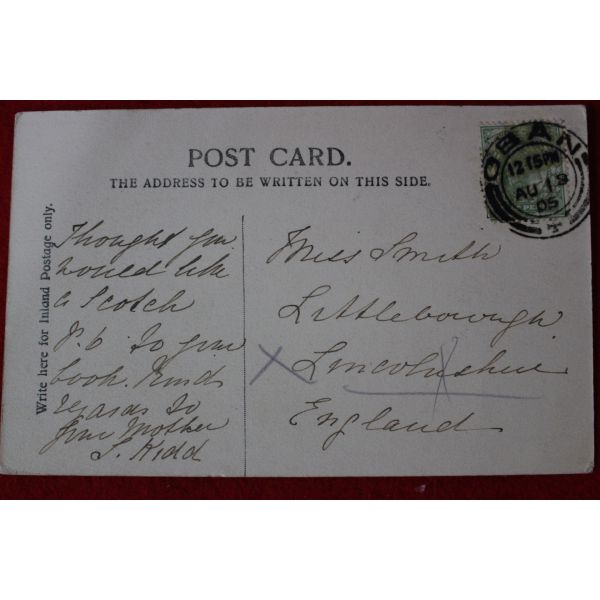 POST CARD.
THE ADDRESS TO BE WRITTEN ON THIS SIDE.
OBAN
12 15PM
AU 18
05
Write here for Inland Postage only.
Thought you
would like
a Scotch
P.C to your
book. Kind
regards to
your Mother
S. Kidd
Miss Smith
Littleborough
Lincolnshire
England